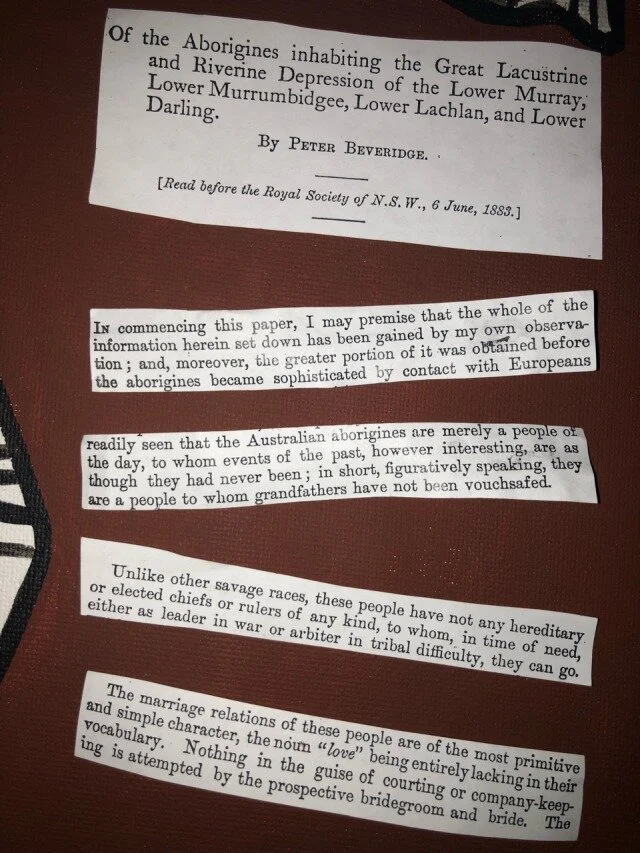 Of the Aborigines inhabiting the Great Lacustrine
and Riverine Depression of the Lower Murray,
Lower Murrumbidgee, Lower Lachlan, and Lower
Darling.
By Peter Beveridge.
[Read before the Royal Society of N.S.W., 6 June, 1883.]
In commencing this paper, I may premise that the whole of the
information herein set down has been gained by my own observa-
tion; and, moreover, the greater portion of it was obtained before
the aborigines became sophisticated by contact with Europeans
readily seen that the Australian aborigines are merely a people of
the day, to whom events of the past, however interesting, are as
though they had never been; in short, figuratively speaking, they
are a people to whom grandfathers have not been vouchsafed.
Unlike other savage races, these people have not any hereditary
or elected chiefs or rulers of any kind, to whom, in time of need,
either as leader in war or arbiter in tribal difficulty, they can go.
The marriage relations of these people are of the most primitive
and simple character, the noun "love" being entirely lacking in their
vocabulary. Nothing in the guise of courting or company-keep-
ing is attempted by the prospective bridegroom and bride. The